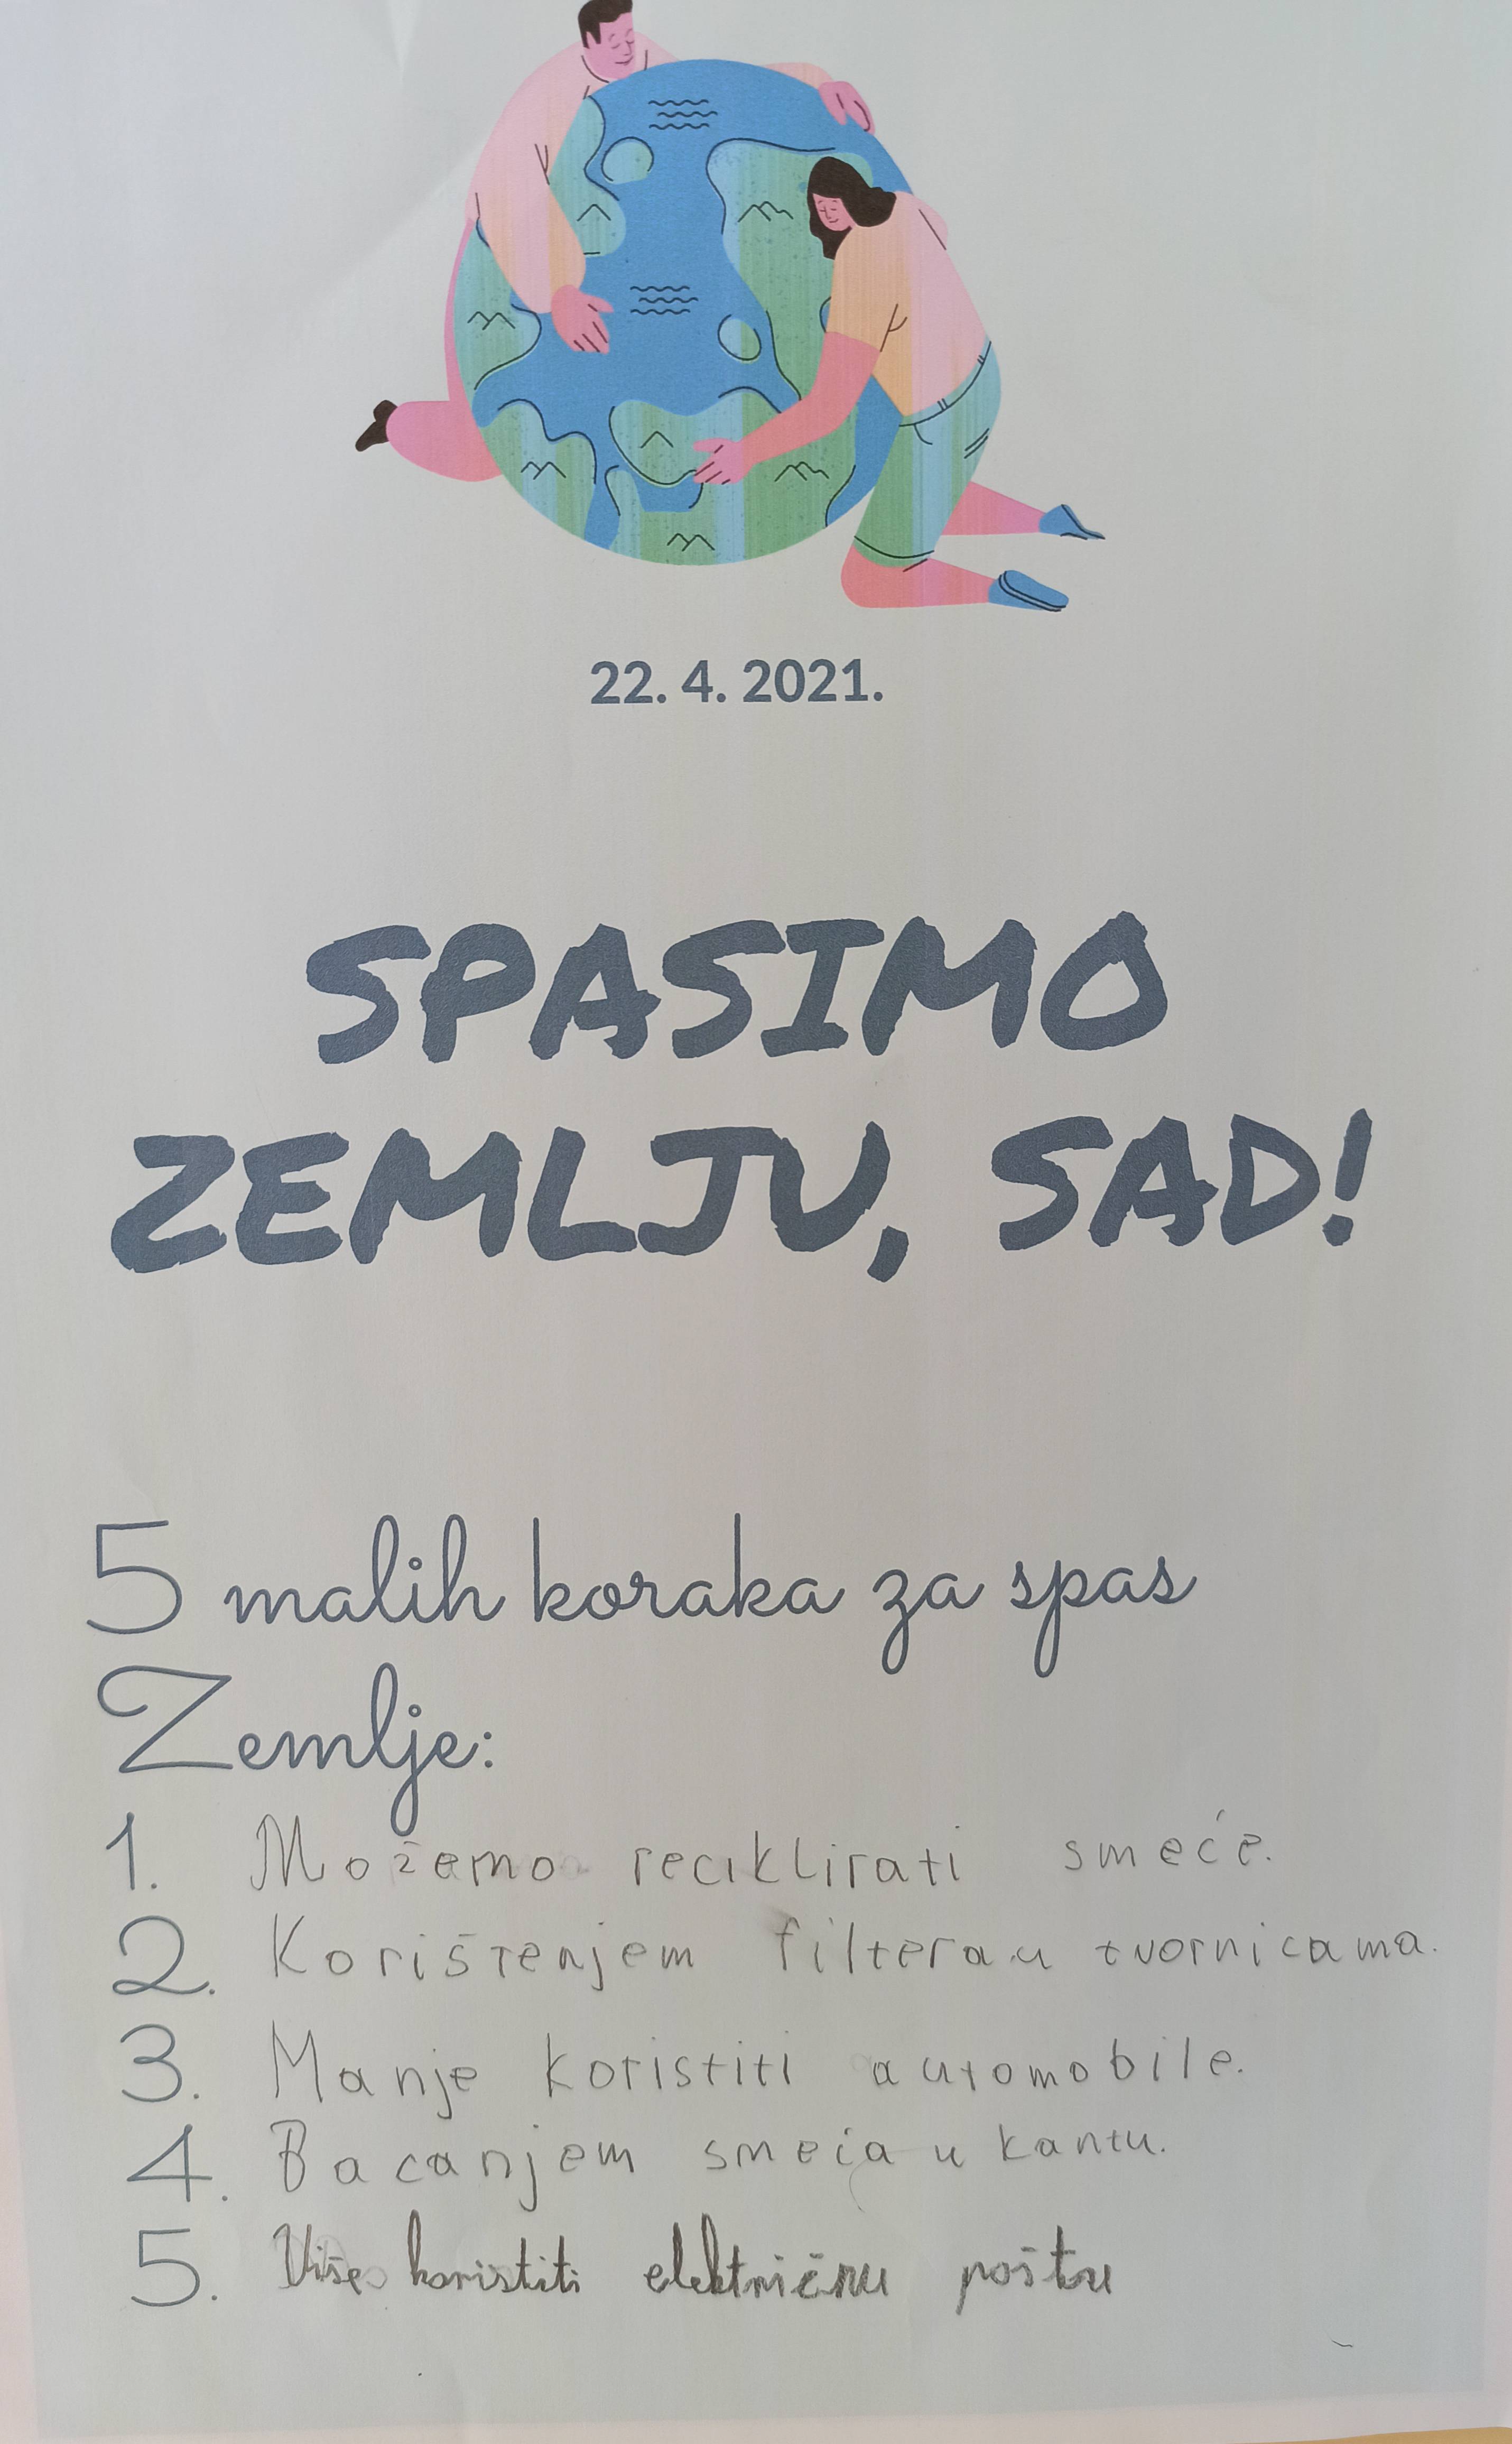 22. 4. 2021.
SPASIMO
ZEMLJU, SAD!
5 malih koraka za spas
Zemlje:
1. Možemo reciklirati smeće.
2. Korištenjem filtera u tvornicama.
3. Manje koristiti automobile.
4. Bacanjem smeća u kantu.
5. Više koristiti električnu poštu